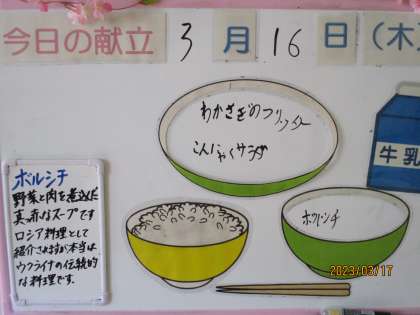 今日の献立 3月16日(木
わかさぎのフリッター
こんにゃくサラダ
牛乳
ボルシチ
野菜と肉を煮込んだ
真っ赤なスープです
ロシア料理として
紹介されますが本当は
ウクライナの伝統的
な料理です。
ボルシチ
2023/03/17